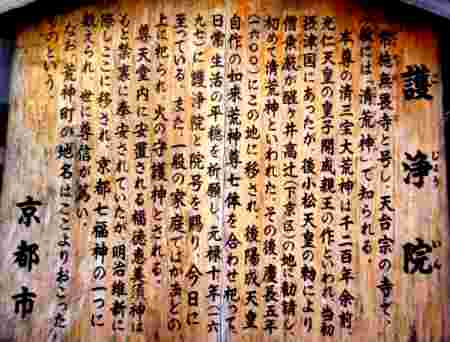 護浄院
じょう いん
常施無畏寺と号し、天台宗の寺で、
般には「清荒神」で知られる。
本尊の清三宝大荒神は千二百年余前、
光仁天皇の皇子開成親王の作といわれ、当初
摂津国にあったが、後小松天皇の勅により
僧乗厳が醒ヶ井高辻(下京区)の地に勧請し、
初めて清荒神といわれた。その後、慶長五年
(一六〇〇)にこの地に移され、後陽成天皇
自作の如来荒神尊七体を合わせ祀って、
日常生活の平穏を祈願し、元禄十年(一六
九七)に護浄院の院号を賜り、今日に
至っている。また、一般の家庭ではかまどの
上に祀られ、火の守護神とされる。
尊天堂内に安置される福徳恵美須神は
もと禁裏に奉安されていたが、明治維新に
際しここに移され、京都七福神の一つに
数えられ、世に尊信が篤い。
なお、荒神町の地名はここよりおこった
ものという。
京都市